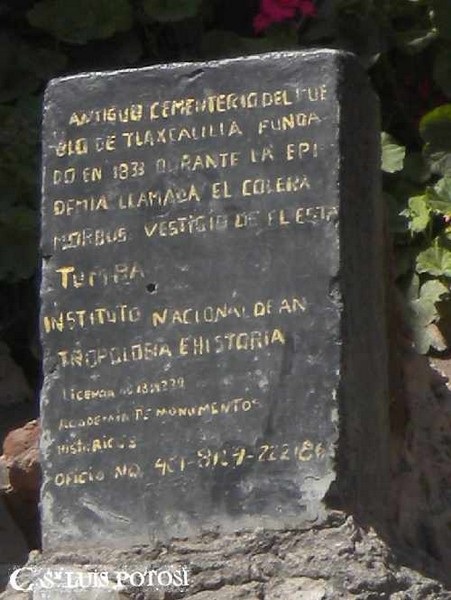 ANTIGUO CEMENTERIO DEL PUE
BLO DE TLAXCALILLA FUNDA
DO EN 1833 DURANTE LA EPI
DEMIA LLAMADA EL COLERA
MORBUS VESTIGIO DE EL ESTA
TUMBA
INSTITUTO NACIONAL DE AN
TROPOLOGIA E HISTORIA
LICENCIA
ACADEMIA DE MONUMENTOS
HISTORICOS
OFICIO NO. 401-
SN LUIS POTOSI